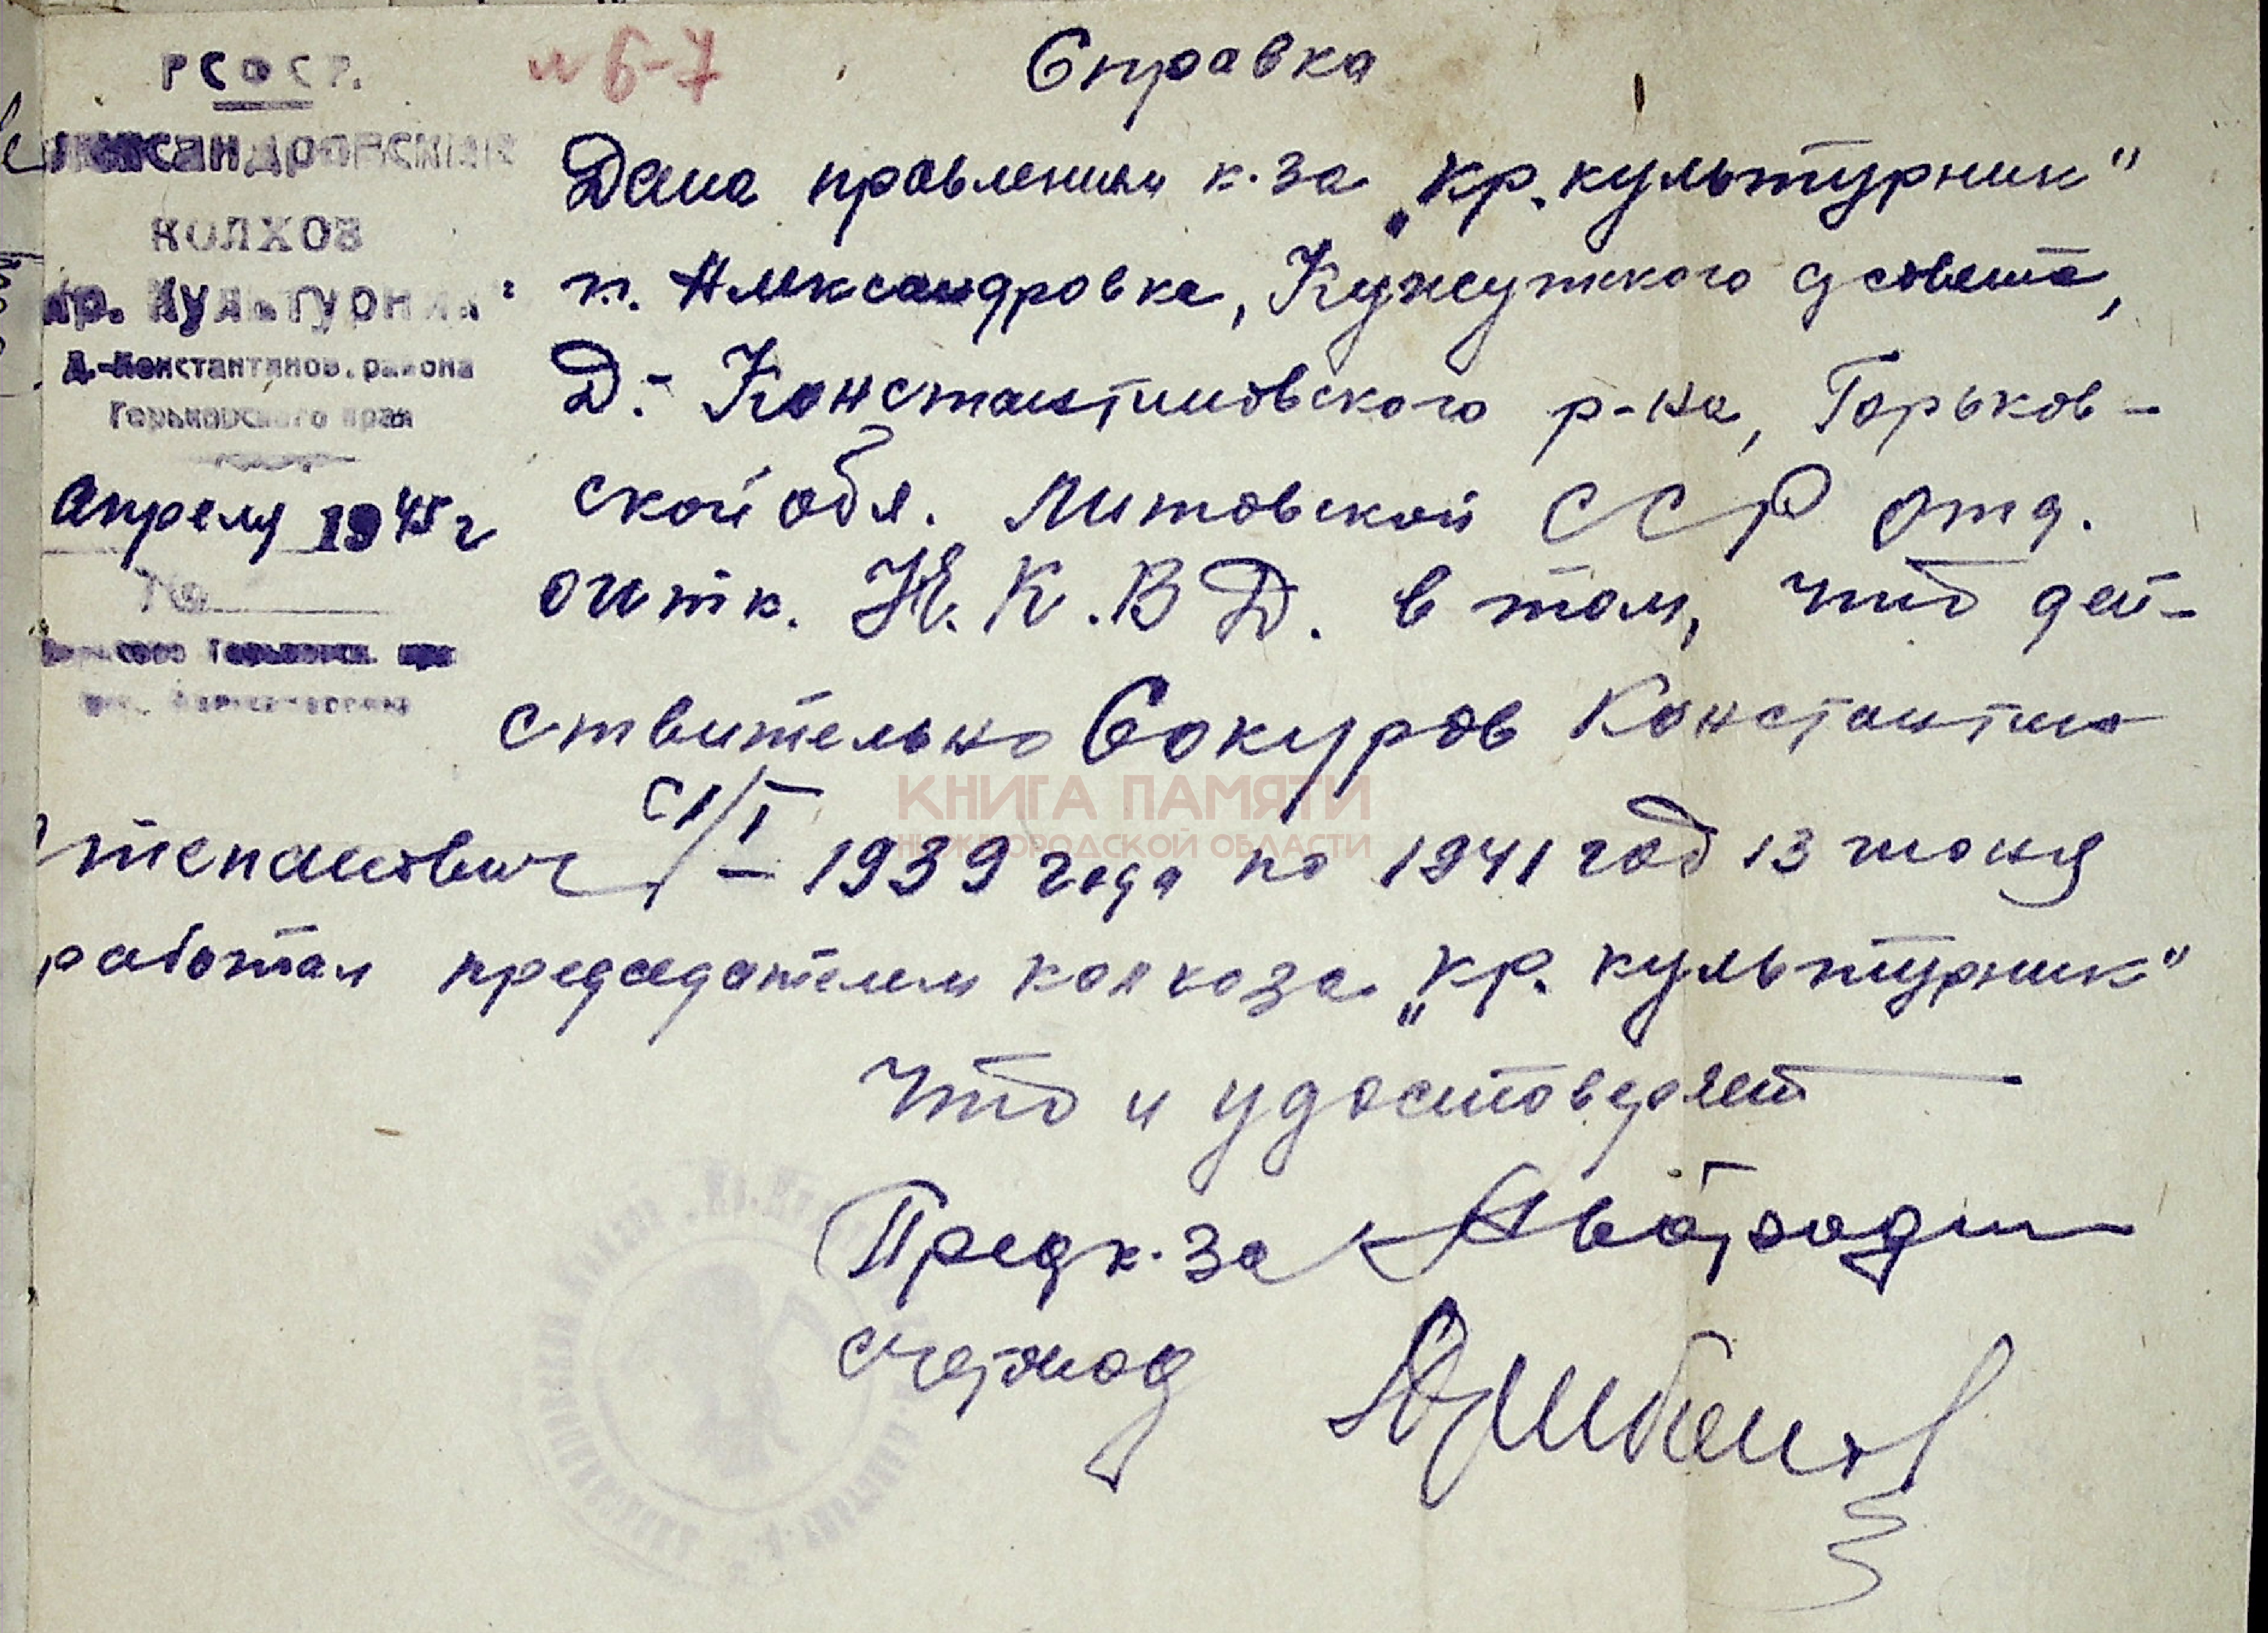 РСФСР.
Александровский
КОЛХОЗ
"Кр. Культурник"
Д.-Константинов. района
Горьковского края
Апреля 1945 г
№
№ 6-7
Справка
Дана правлением к-за „Кр. культурник"
п. Александровка, Кужутского с/совета,
Д.-Константиновского р-на, Горьков-
ской обл. Литовской ССР отд.
оитк. Н.К.В.Д. в том, что дей-
ствительно Сокуров Константин
Степанович с 1/I - 1939 года по 1941 год 13 июня
работал председателем колхоза „Кр. культурник"
Что и удостоверяет
Пред к-за
Счетовод
КНИГА ПАМЯТИ
НИЖЕГОРОДСКОЙ ОБЛАСТИ